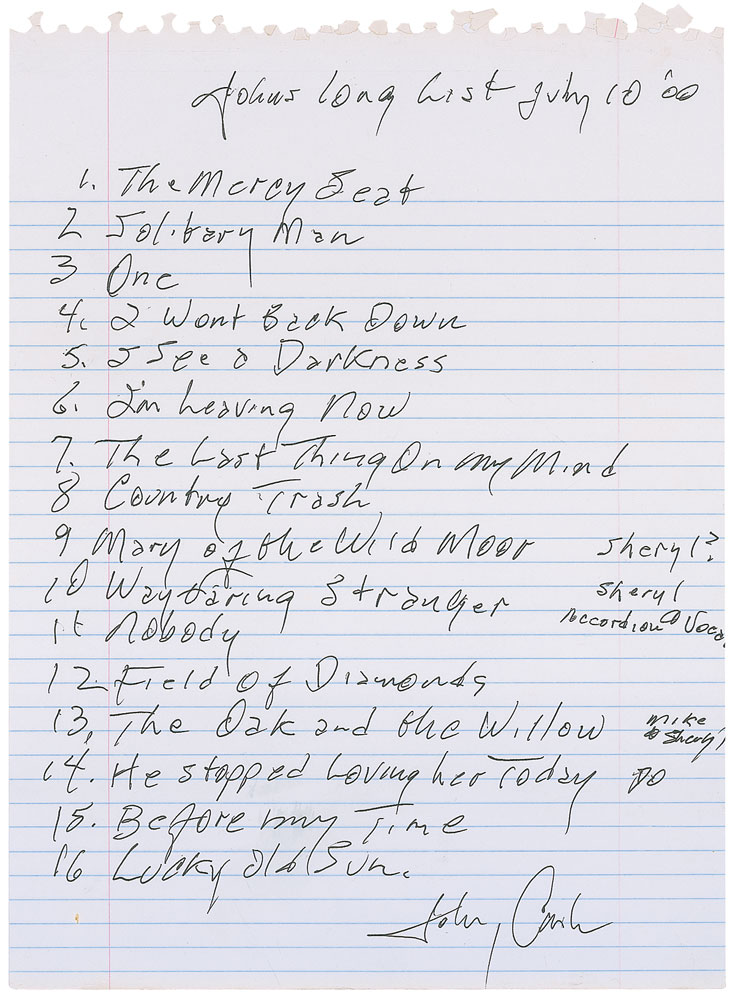 Johns long List July 10 '00
1. The Mercy Seat
2 Solitary Man
3 One
4. I Wont Back Down
5. I See a Darkness
6. I'm Leaving Now
7. The Last Thing On my Mind
8 Country Trash
9 Mary of the Wild Moor Sheryl?
10 Wayfaring Stranger Sheryl
accordion & Voca
11 Nobody
12. Field of Diamonds
13, The Oak and the Willow Mike
& Sheryl
14. He stopped Loving her Today DO
15. Before my Time
16 Lucky Old Sun.
John, Cash